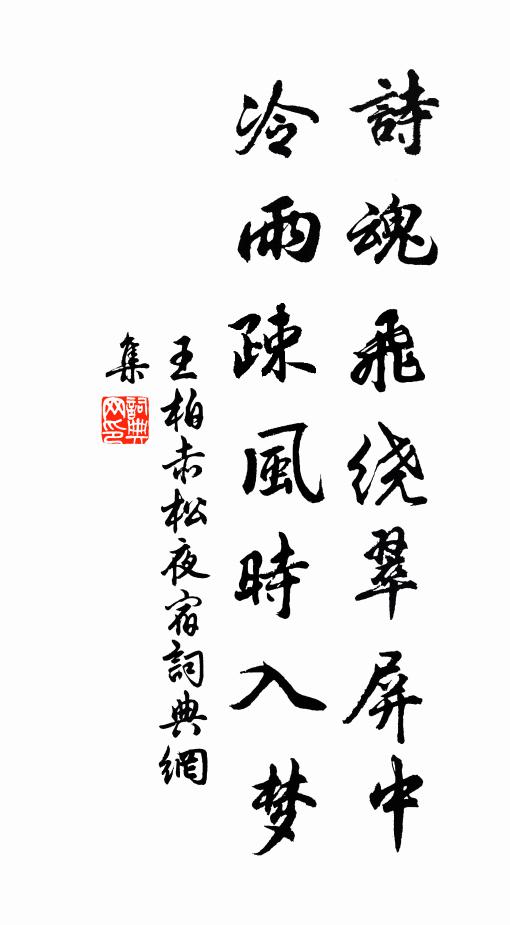 詩魂飛绕翠屏中
冷雨疎風時入梦
王柏赤松夜宿詞典網
集
詞典网印